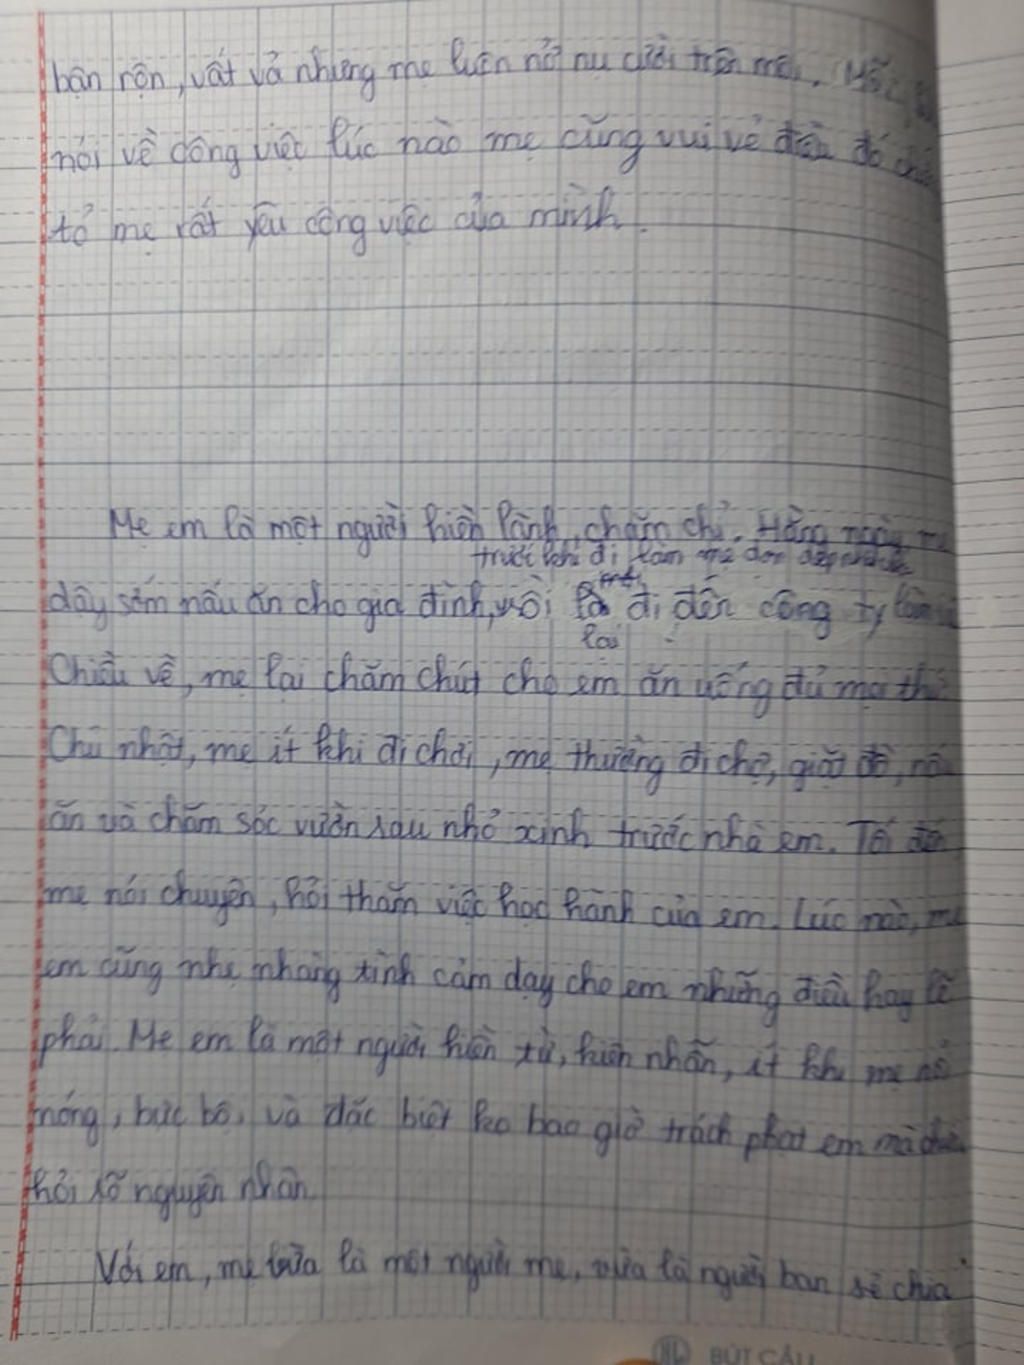 bận rộn, vất vả nhưng mẹ luôn nở nụ cười trên môi. Mỗi
nói về công việc lúc nào mẹ cũng vui vẻ điều đó
tỏ mẹ rất yêu công việc của mình.
Mẹ em là một người hiền lành, chăm chỉ. Hằng ngày, mẹ
trước khi đi làm mẹ dọn dẹp
dậy sớm nấu ăn cho gia đình, rồi đi đến công ty làm
lại
Chiều về, mẹ lại chăm chút cho em ăn uống đủ mọi thứ.
Chủ nhật, mẹ ít khi đi chơi, mẹ thường đi chợ, giặt đồ, nấu
ăn và chăm sóc vườn rau nhỏ xinh trước nhà em. Tối đến
mẹ nói chuyện, hỏi thăm việc học hành của em. Lúc nào, mẹ
em cũng nhẹ nhàng tình cảm dạy cho em những điều hay lẽ
phải. Mẹ em là một người hiền từ, kiên nhẫn, ít khi mẹ nổ
nóng, bực bộ, và đặc biệt ko bao giờ trách phạt em mà
hỏi rõ nguyên nhân.
Với em, mẹ vừa là một người mẹ, vừa là người bạn sẻ chia
BÚT CẦU